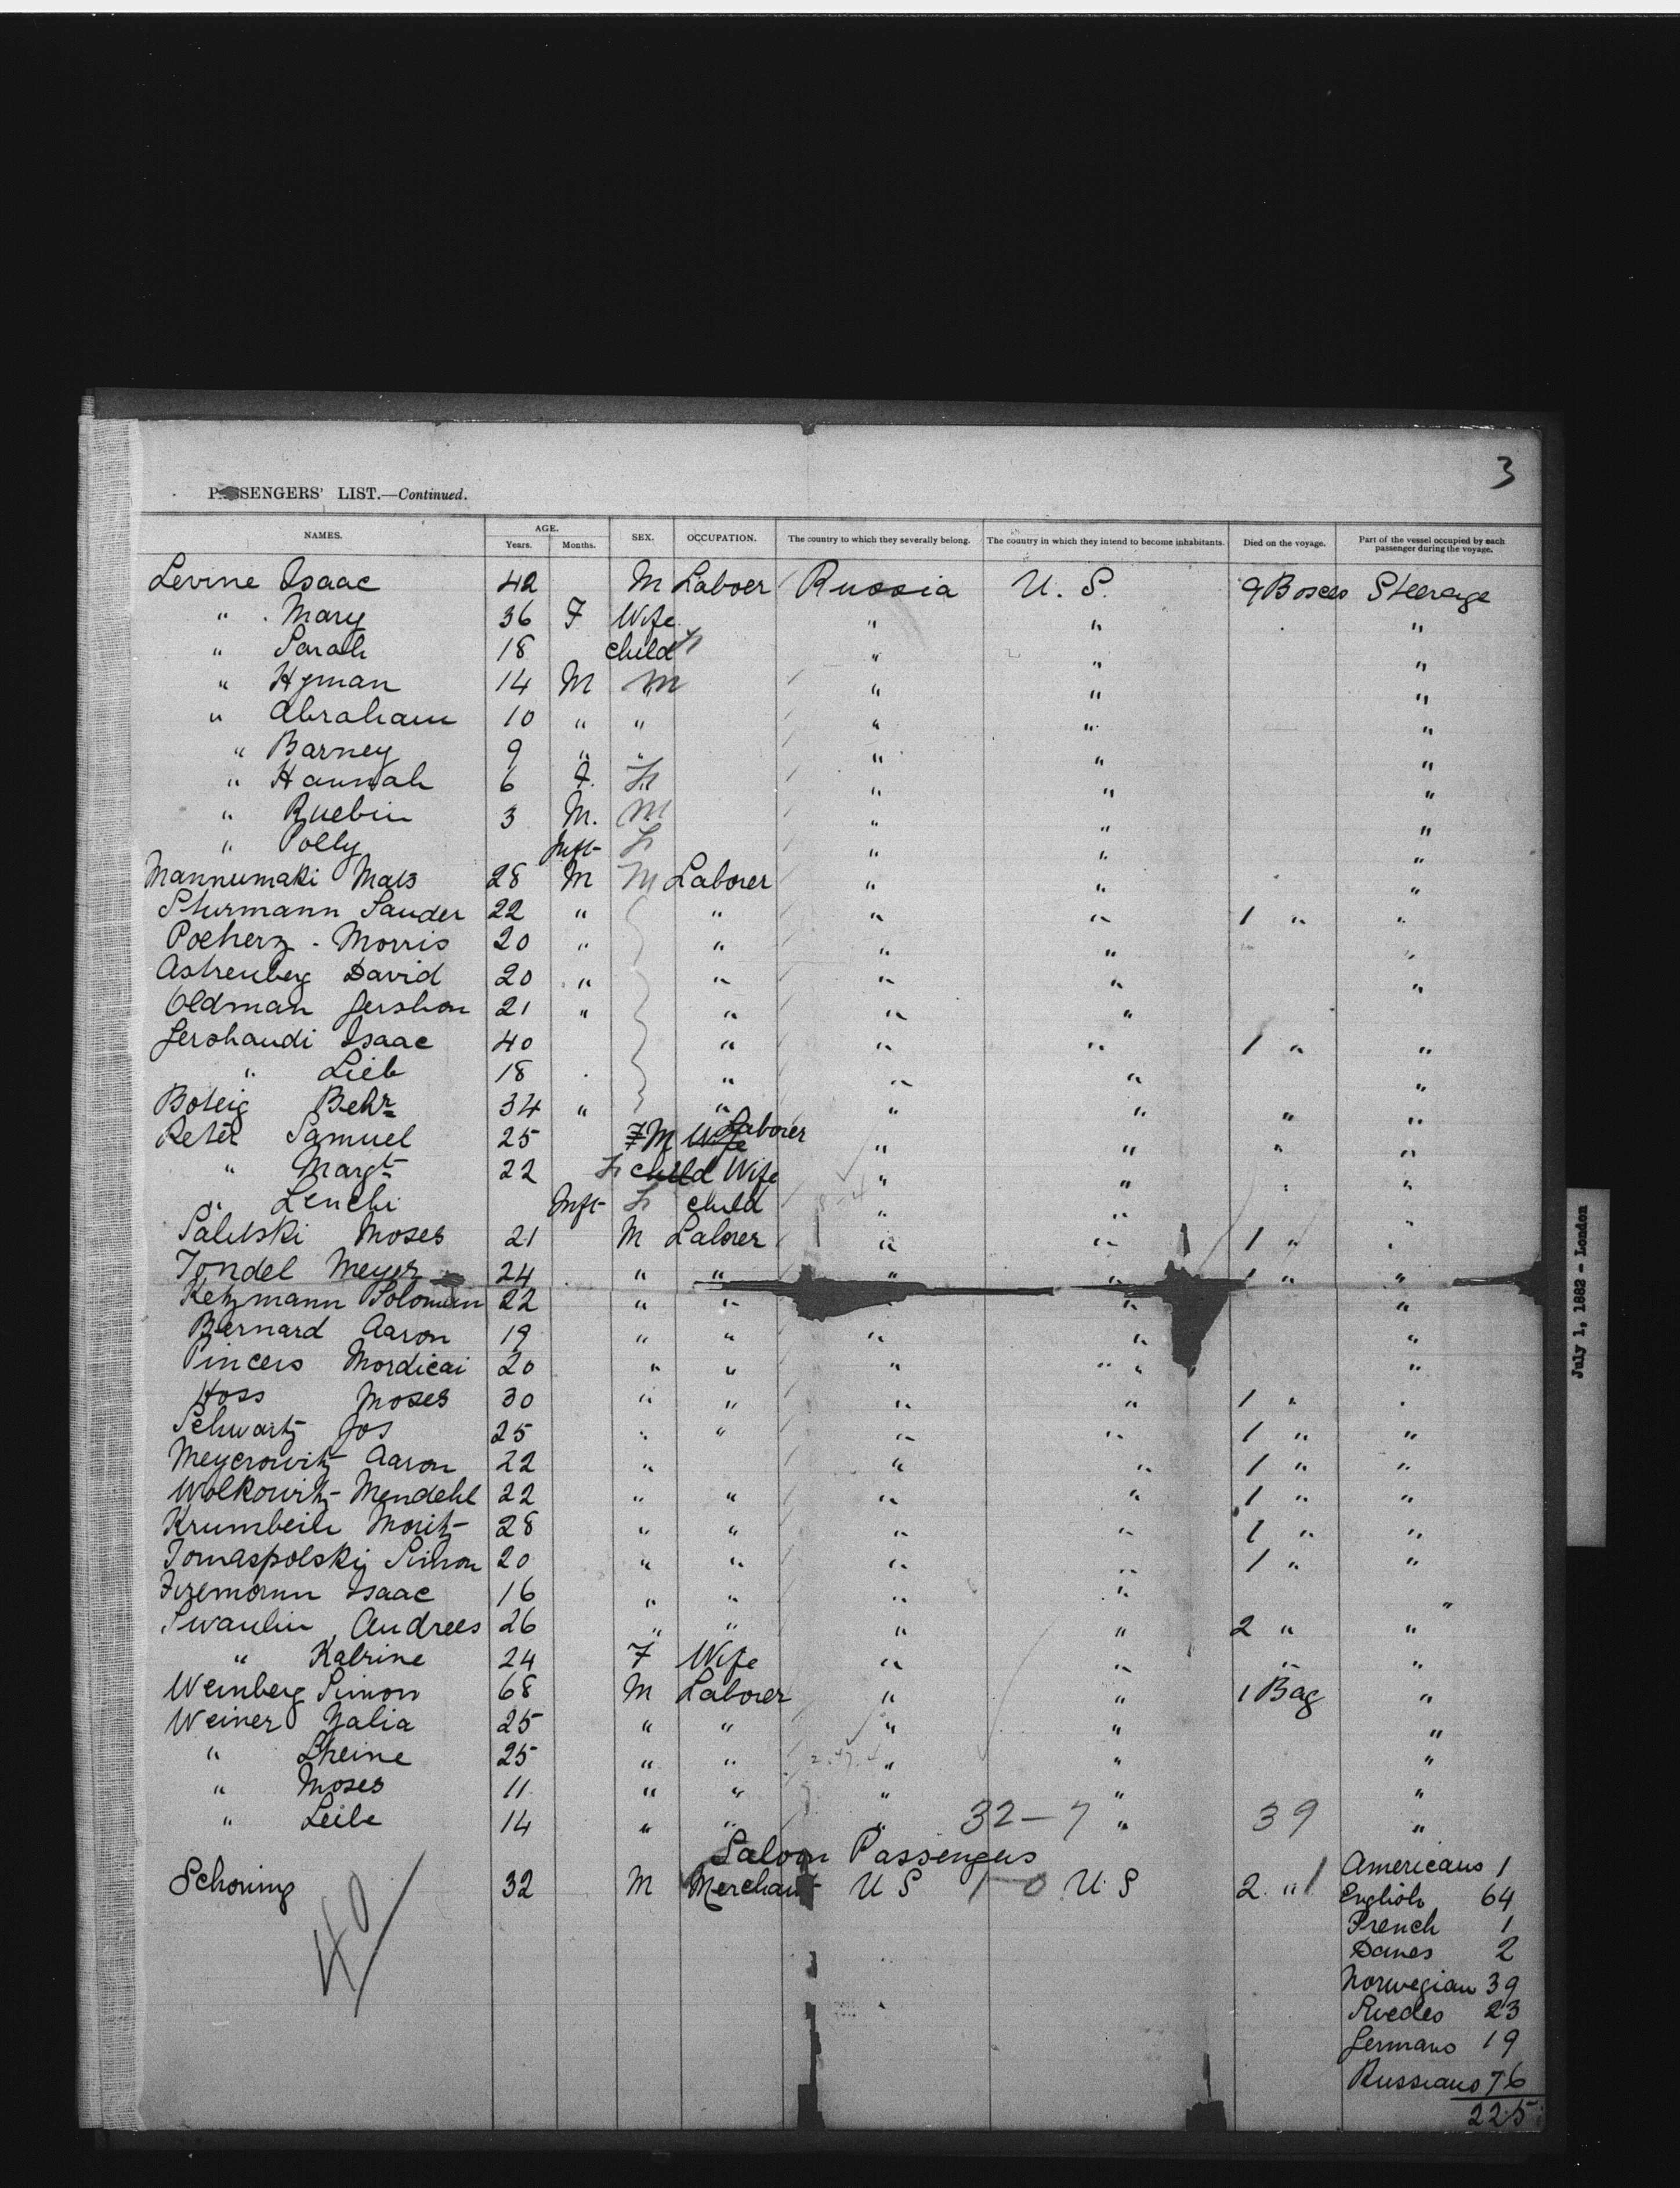 3
PASSENGERS' LIST.—Continued.
NAMES. AGE. Years. Months. SEX. OCCUPATION. The country to which they severally belong. The country in which they intend to become inhabitants. Died on the voyage. Part of the vessel occupied by each passenger during the voyage.
Levine Isaac 42 M Laboer Russia U. S. 9 Boxes Steerage
" Mary 36 F Wife " " "
" Sarah 18 child F " " "
" Hyman 14 M m " " "
" Abraham 10 " " " " "
" Barney 9 " " " " "
" Hannah 6 F. F " " "
" Ruebin 3 M. m " " "
" Polly Inft F " " "
Mannumaki Mats 28 M M Laborer " " "
Sturmann Sander 22 " " " " 1 " "
Pocherz Morris 20 " " " " "
Astrenberg David 20 " " " " "
Oldman Gershon 21 " " " "
Gershandi Isaac 40 " " " 1 " "
" Lieb 18 " " " "
Boteig Behr 34 " " " " " "
Reter Samuel 25 F M Wife Laborer " " " "
" Margt 22 F child Wife " " " "
" Lenchi Inft F child " " "
Saletski Moses 21 M Laborer " " 1 " "
Tondel Meyer 24 " " " " 1 " "
Ketzmann Soloman 22 " " " " "
Bernard Aaron 19 " " " " "
Pincers Mordicai 20 " " " " "
Hoss Moses 30 " " " " 1 " "
Schwartz Jos 25 " " " " 1 " "
Meyerowitz Aaron 22 " " " 1 " "
Wolkowitz Mendehl 22 " " " " 1 " "
Krumbeih Moritz 28 " " " " 1 " "
Tomaspolski Simon 20 " " " " 1 " "
Firemann Isaac 16 " " " " "
Swanlin Andrees 26 " " " " 2 " "
" Katrine 24 F Wife " " " "
Weinberg Simon 68 M Laborer " " 1 Bag "
Weiner Nalia 25 " " " " "
" Sheine 25 " " " " "
" Moses 11 " " " " "
" Leibe 14 " " " 32 - 7 " 39 "
Saloon Passengers
Schoning 32 M Merchant U S 1 0 U S 2 " 1
40
Americans 1
English 64
French 1
Danes 2
Norwegian 39
Swedes 23
Germans 19
Russians 76
225
July 1, 1882 - London